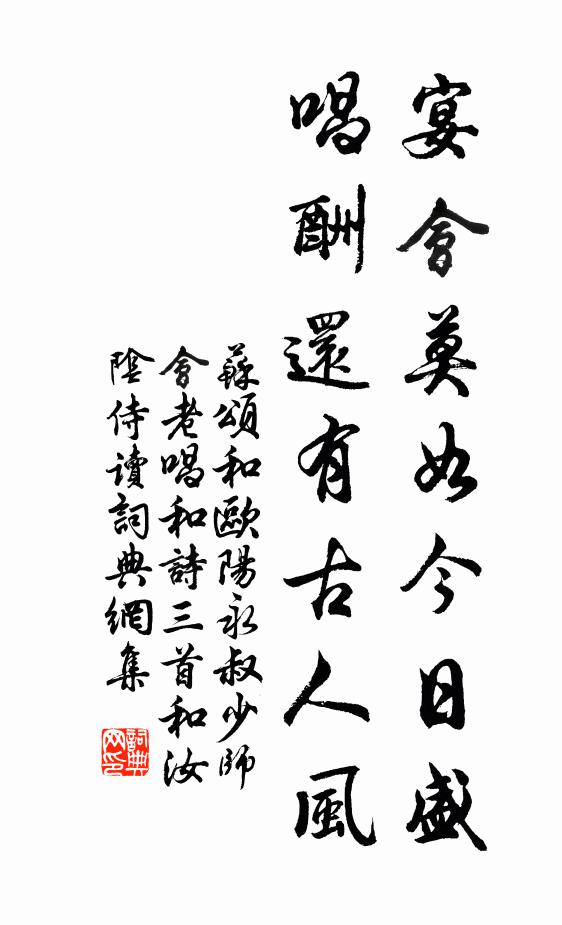 宴會莫如今日盛
唱酬還有古人風
蘇頌和歐陽永叔少師
會老唱和詩三首和汝
陰侍讀詞典網集
詞典网印